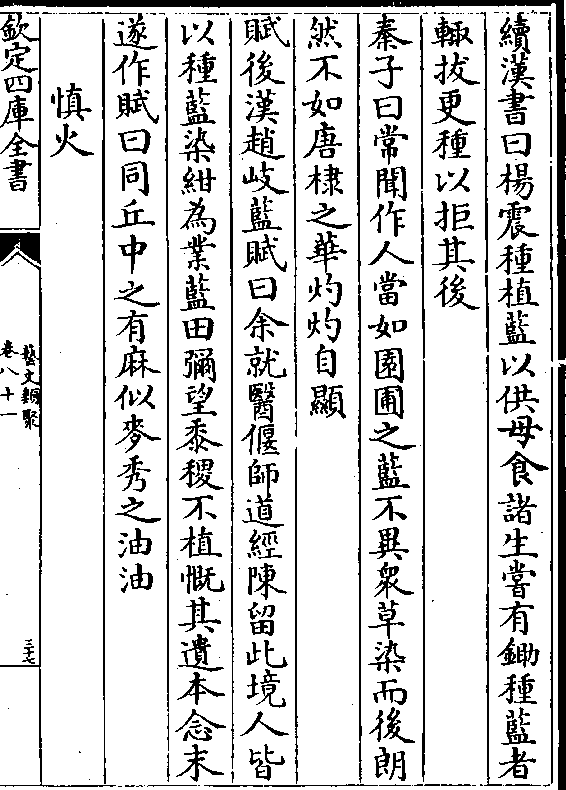 續漢書曰楊震種植藍以供母食諸生嘗有鋤種藍者
輙拔更種以拒其後
秦子曰常聞作人當如園圃之藍不異衆草染而後朗
然不如唐棣之華灼灼自顯
賦後漢趙岐藍賦曰余就醫偃師道經陳留此境人皆
以種藍染紺為業藍田彌望黍稷不植慨其遺本念末
遂作賦曰同丘中之有麻似麥秀之油油
慎火
欽定四庫全書
藝文類聚
卷八十一
三十七